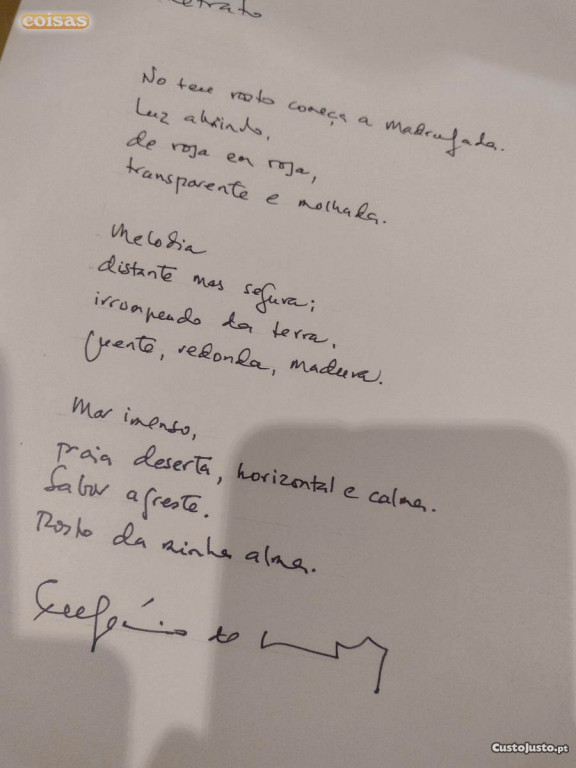 coisas
Retrato
No teu rosto começa a madrugada.
Luz abrindo,
de rosa em rosa,
transparente e molhada.
Melodia
distante mas segura;
irrompendo da terra,
quente, redonda, madura.
Mar imenso,
praia deserta, horizontal e calma.
Sabor agreste.
Rosto da minha alma.
Eugénio de
CustoJusto.pt